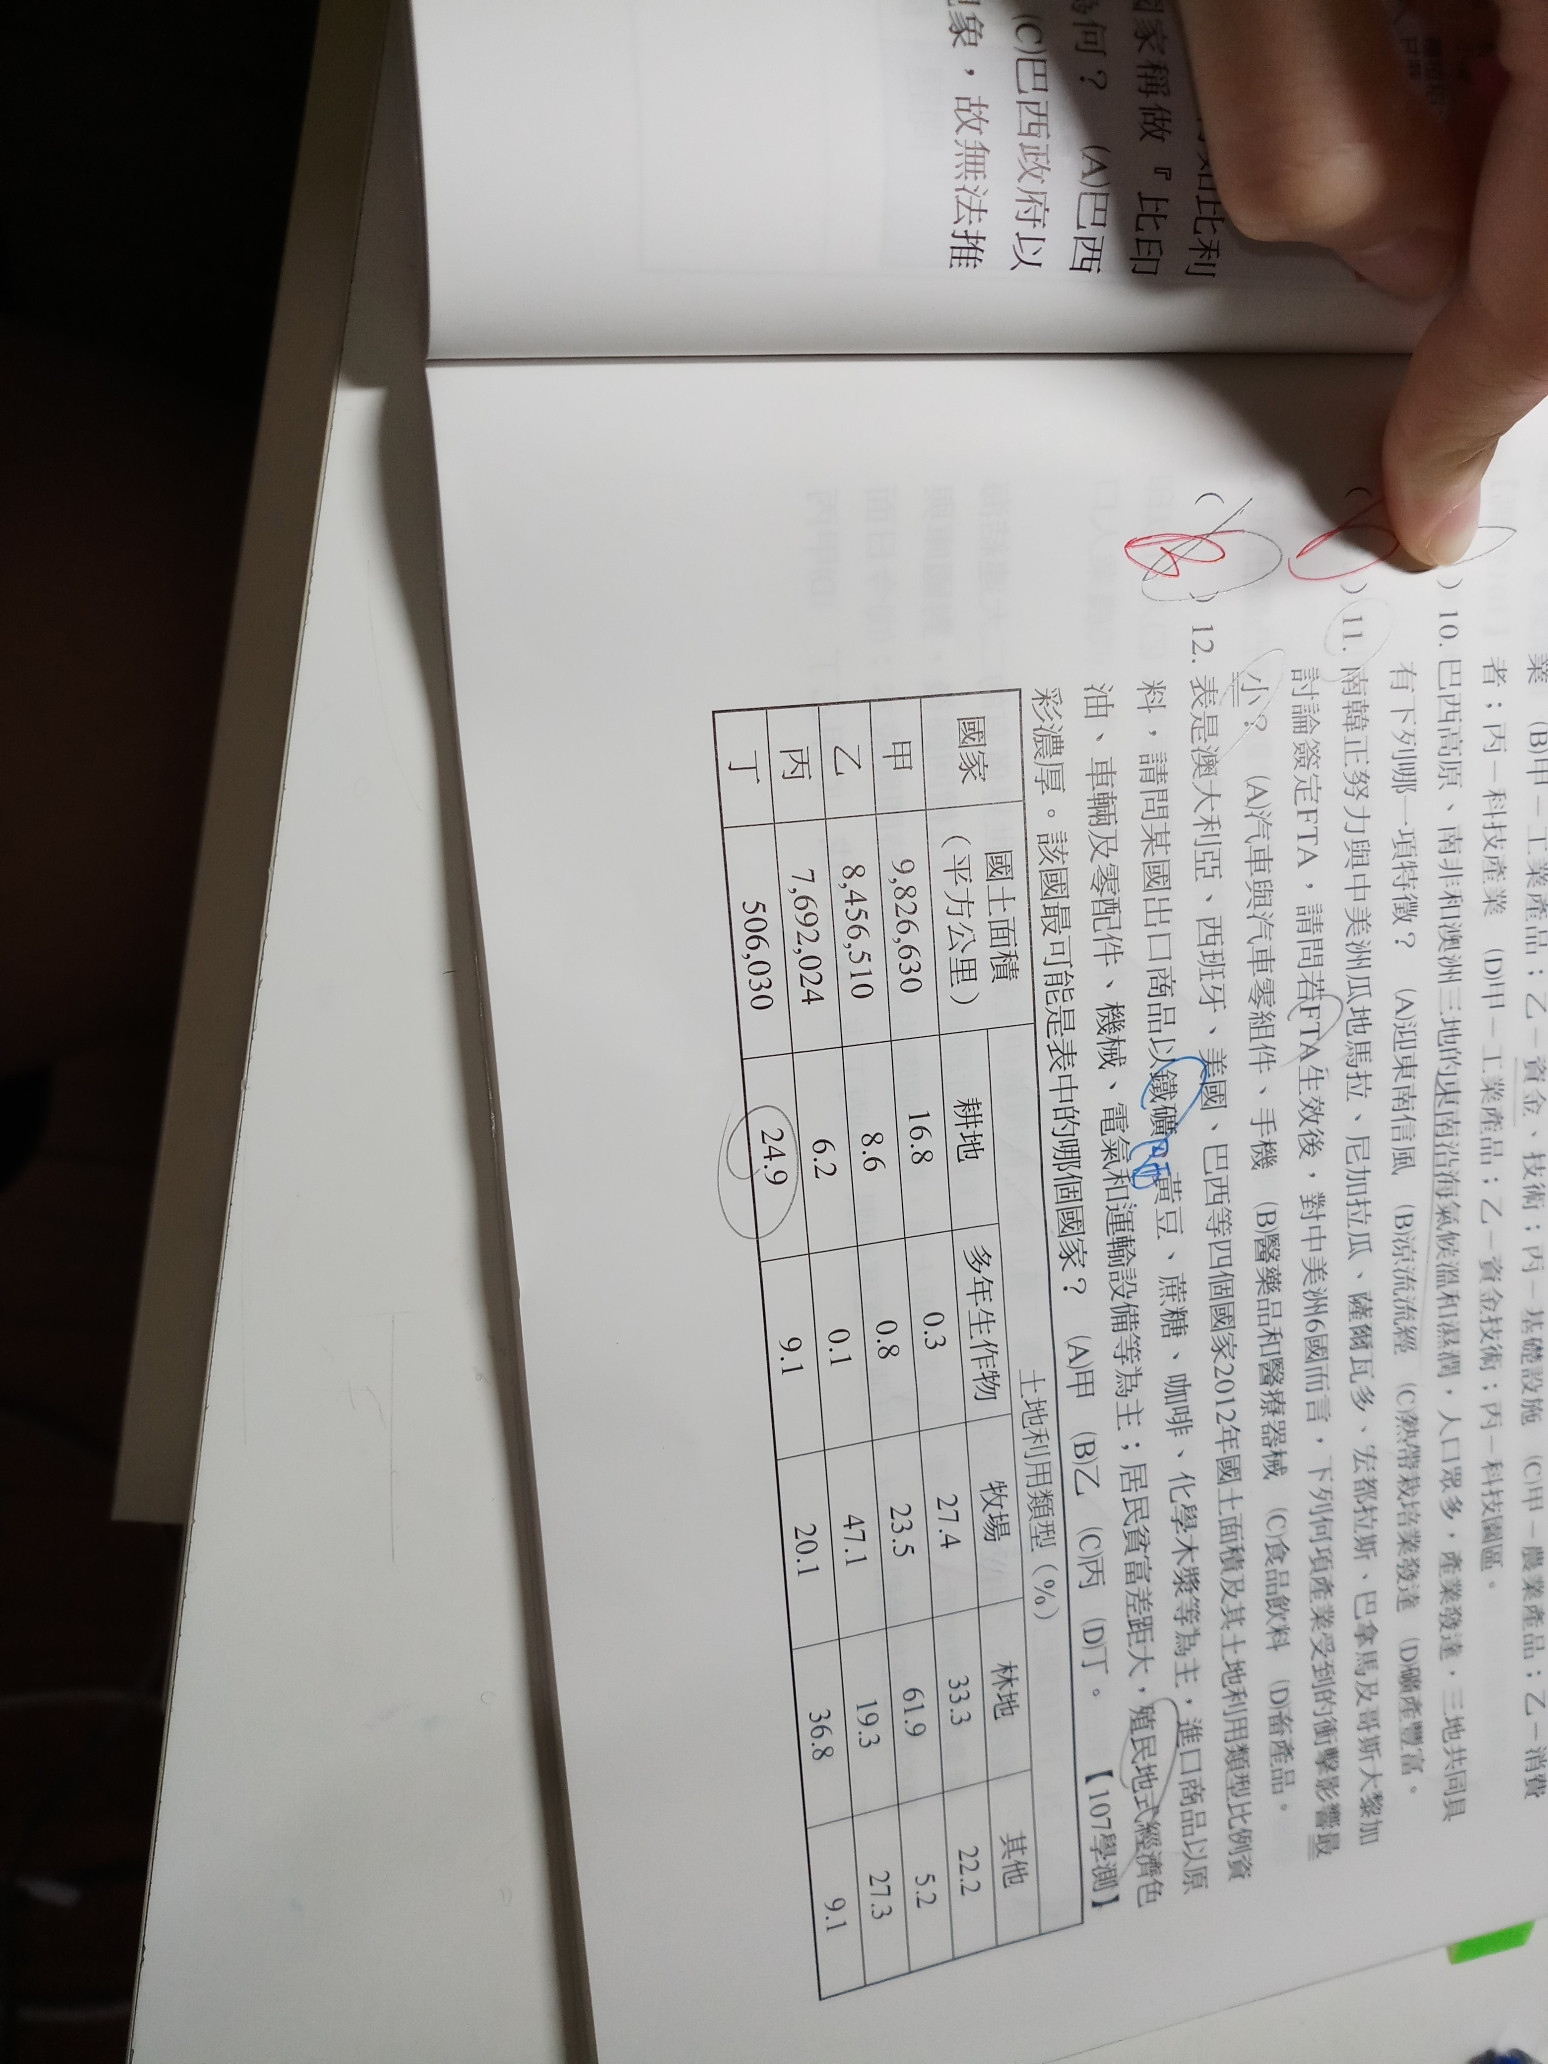 有如比利
國家稱做『比印
為何？ (A)巴西
(C)巴西政府以
現象，故無法推
業 (B)甲－工業產品；乙－資金、技術；丙－基礎設施 (C)甲－農業產品；乙－消費
者；丙－科技產業 (D)甲－工業產品；乙－資金技術；丙－科技園區。
) 10. 巴西高原、南非和澳洲三地的東南沿海氣候溫和濕潤，人口眾多，產業發達，三地共同具
有下列哪一項特徵？ (A)迎東南信風 (B)涼流流經 (C)熱帶栽培業發達 (D)礦產豐富。
( ) 11. 南韓正努力與中美洲瓜地馬拉、尼加拉瓜、薩爾瓦多、宏都拉斯、巴拿馬及哥斯大黎加
討論簽定FTA，請問若FTA生效後，對中美洲6國而言，下列何項產業受到的衝擊影響最
小？ (A)汽車與汽車零組件、手機 (B)醫藥品和醫療器械 (C)食品飲料 (D)畜產品。
( B ) 12. 表是澳大利亞、西班牙、美國、巴西等四個國家2012年國土面積及其土地利用類型比例資
料，請問某國出口商品以鐵礦 黃豆、蔗糖、咖啡、化學木漿等為主，進口商品以原
油、車輛及零配件、機械、電氣和運輸設備等為主；居民貧富差距大，殖民地式經濟色
彩濃厚。該國最可能是表中的哪個國家？ (A)甲 (B)乙 (C)丙 (D)丁。 【107學測】
國家 國土面積（平方公里） 土地利用類型（%）
耕地 多年生作物 牧場 林地 其他
甲 9,826,630 16.8 0.3 27.4 33.3 22.2
乙 8,456,510 8.6 0.8 23.5 61.9 5.2
丙 7,692,024 6.2 0.1 47.1 19.3 27.3
丁 506,030 24.9 9.1 20.1 36.8 9.1